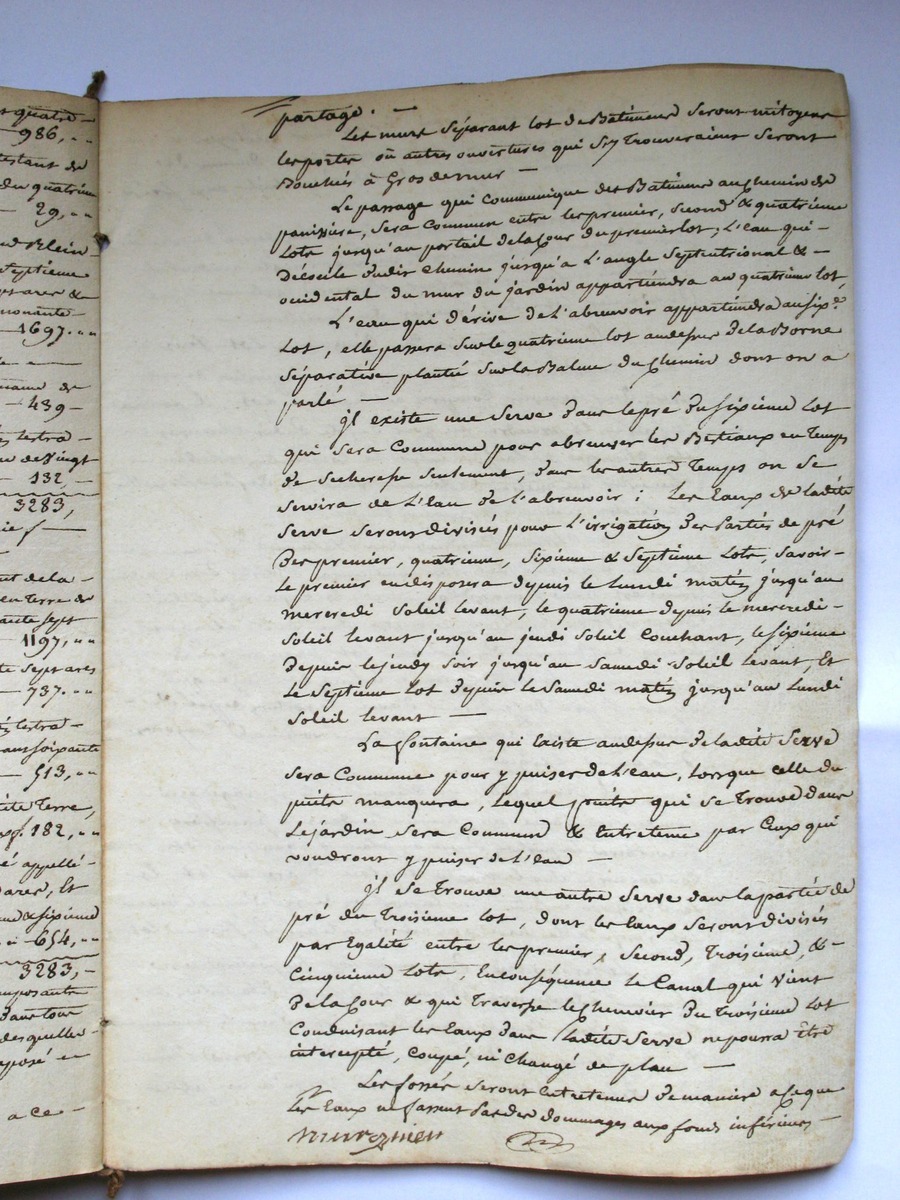 t quatre —
— 986, ..
estant de
du quatrieme
— 29, ..
Klein
Septieme
ares &
nonante
— 1697. ..
de
— 439 —
Lestra —
de Vingt
— 132, —
3283,
dela —
en Terre de
ante sept
— 1197, ..
te Sept ares
— 737. ..
Lestra —
Soixante
— 513, ..
dite Terre,
182, ..
é appellé —
ares, Et
& sixieme
— 654, ..
3283, —
mposante
dans tous
desquelles —
posé en
a ce —
partage. —
Les murs Séparant lot de Bâtimens Seront mitoyens
les portes où autres ouvertures qui S'y Trouveraient Seront
Bouchés à Gros de mur —
Le passage qui Communique des Batimens au Chemin de
panissiere, Sera Commun entre les premier, Second & quatrieme
Lots jusqu'au portail de la Cour du premier lot, L'eau qui —
Découle dudit Chemin jusqu'a L'angle Septentrional & —
occidental du mur du jardin appartiendra au quatrieme lot,
L'eau qui dérive de L'abreuvoir appartiendra au six.e
Lot, elle passera Sur le quatrieme lot audessus de la Borne
Séparative plantée Sur la Balme du Chemin dont on a
parlé —
jl existe une Serve dans le pré du Sixieme Lot
qui Sera Commune pour abreuver les Bestiaux en Temps
de Secheresse Seulement, dans les autres Temps on Se
Servira de L'Eau de L'abreuvoir ; Les Eaux de ladite
Serve Seront divisées pour L'irrigation des Parties de pré
Des premier, quatrieme, Sixieme & Septieme Lots, Savoir —
Le premier en disposera depuis le Lundi matin jusqu'au
mercredi Soleil levant, le quatrieme depuis le mercredi —
Soleil levant jusqu'au jeudi Soleil Couchant, le sixieme
Depuis le jeudy Soir jusqu'au Samedi Soleil Levant, Et
Le Septieme Lot Depuis le Samedi matin jusqu'au Lundi
Soleil levant —
La fontaine qui Existe audessus de ladite Serve
Sera Commune pour y puiser de L'eau, Lorsque celle du
puits manquera, Lequel puits qui se Trouve dans
Le jardin Sera Commun & Entretenu par Ceux qui
voudront y puiser de L'eau —
jl se Trouve une autre Serve dans la partie de
pré du Troisieme lot, dont les Eaux Seront divisées
par Egalité entre les premier, Second, Troisieme, & —
Cinquieme Lots, En conséquence le Canal qui Vient
De la Cour & qui Traverse le Chenevier du Troisieme Lot
Conduisant les Eaux dans Ladite Serve ne pourra Être
intercepté, Coupé, ni Changé de place —
Les fossés Seront Entretenus de maniere a Ce que
les Eaux ne fassent pas des dommages aux fonds inférieurs —